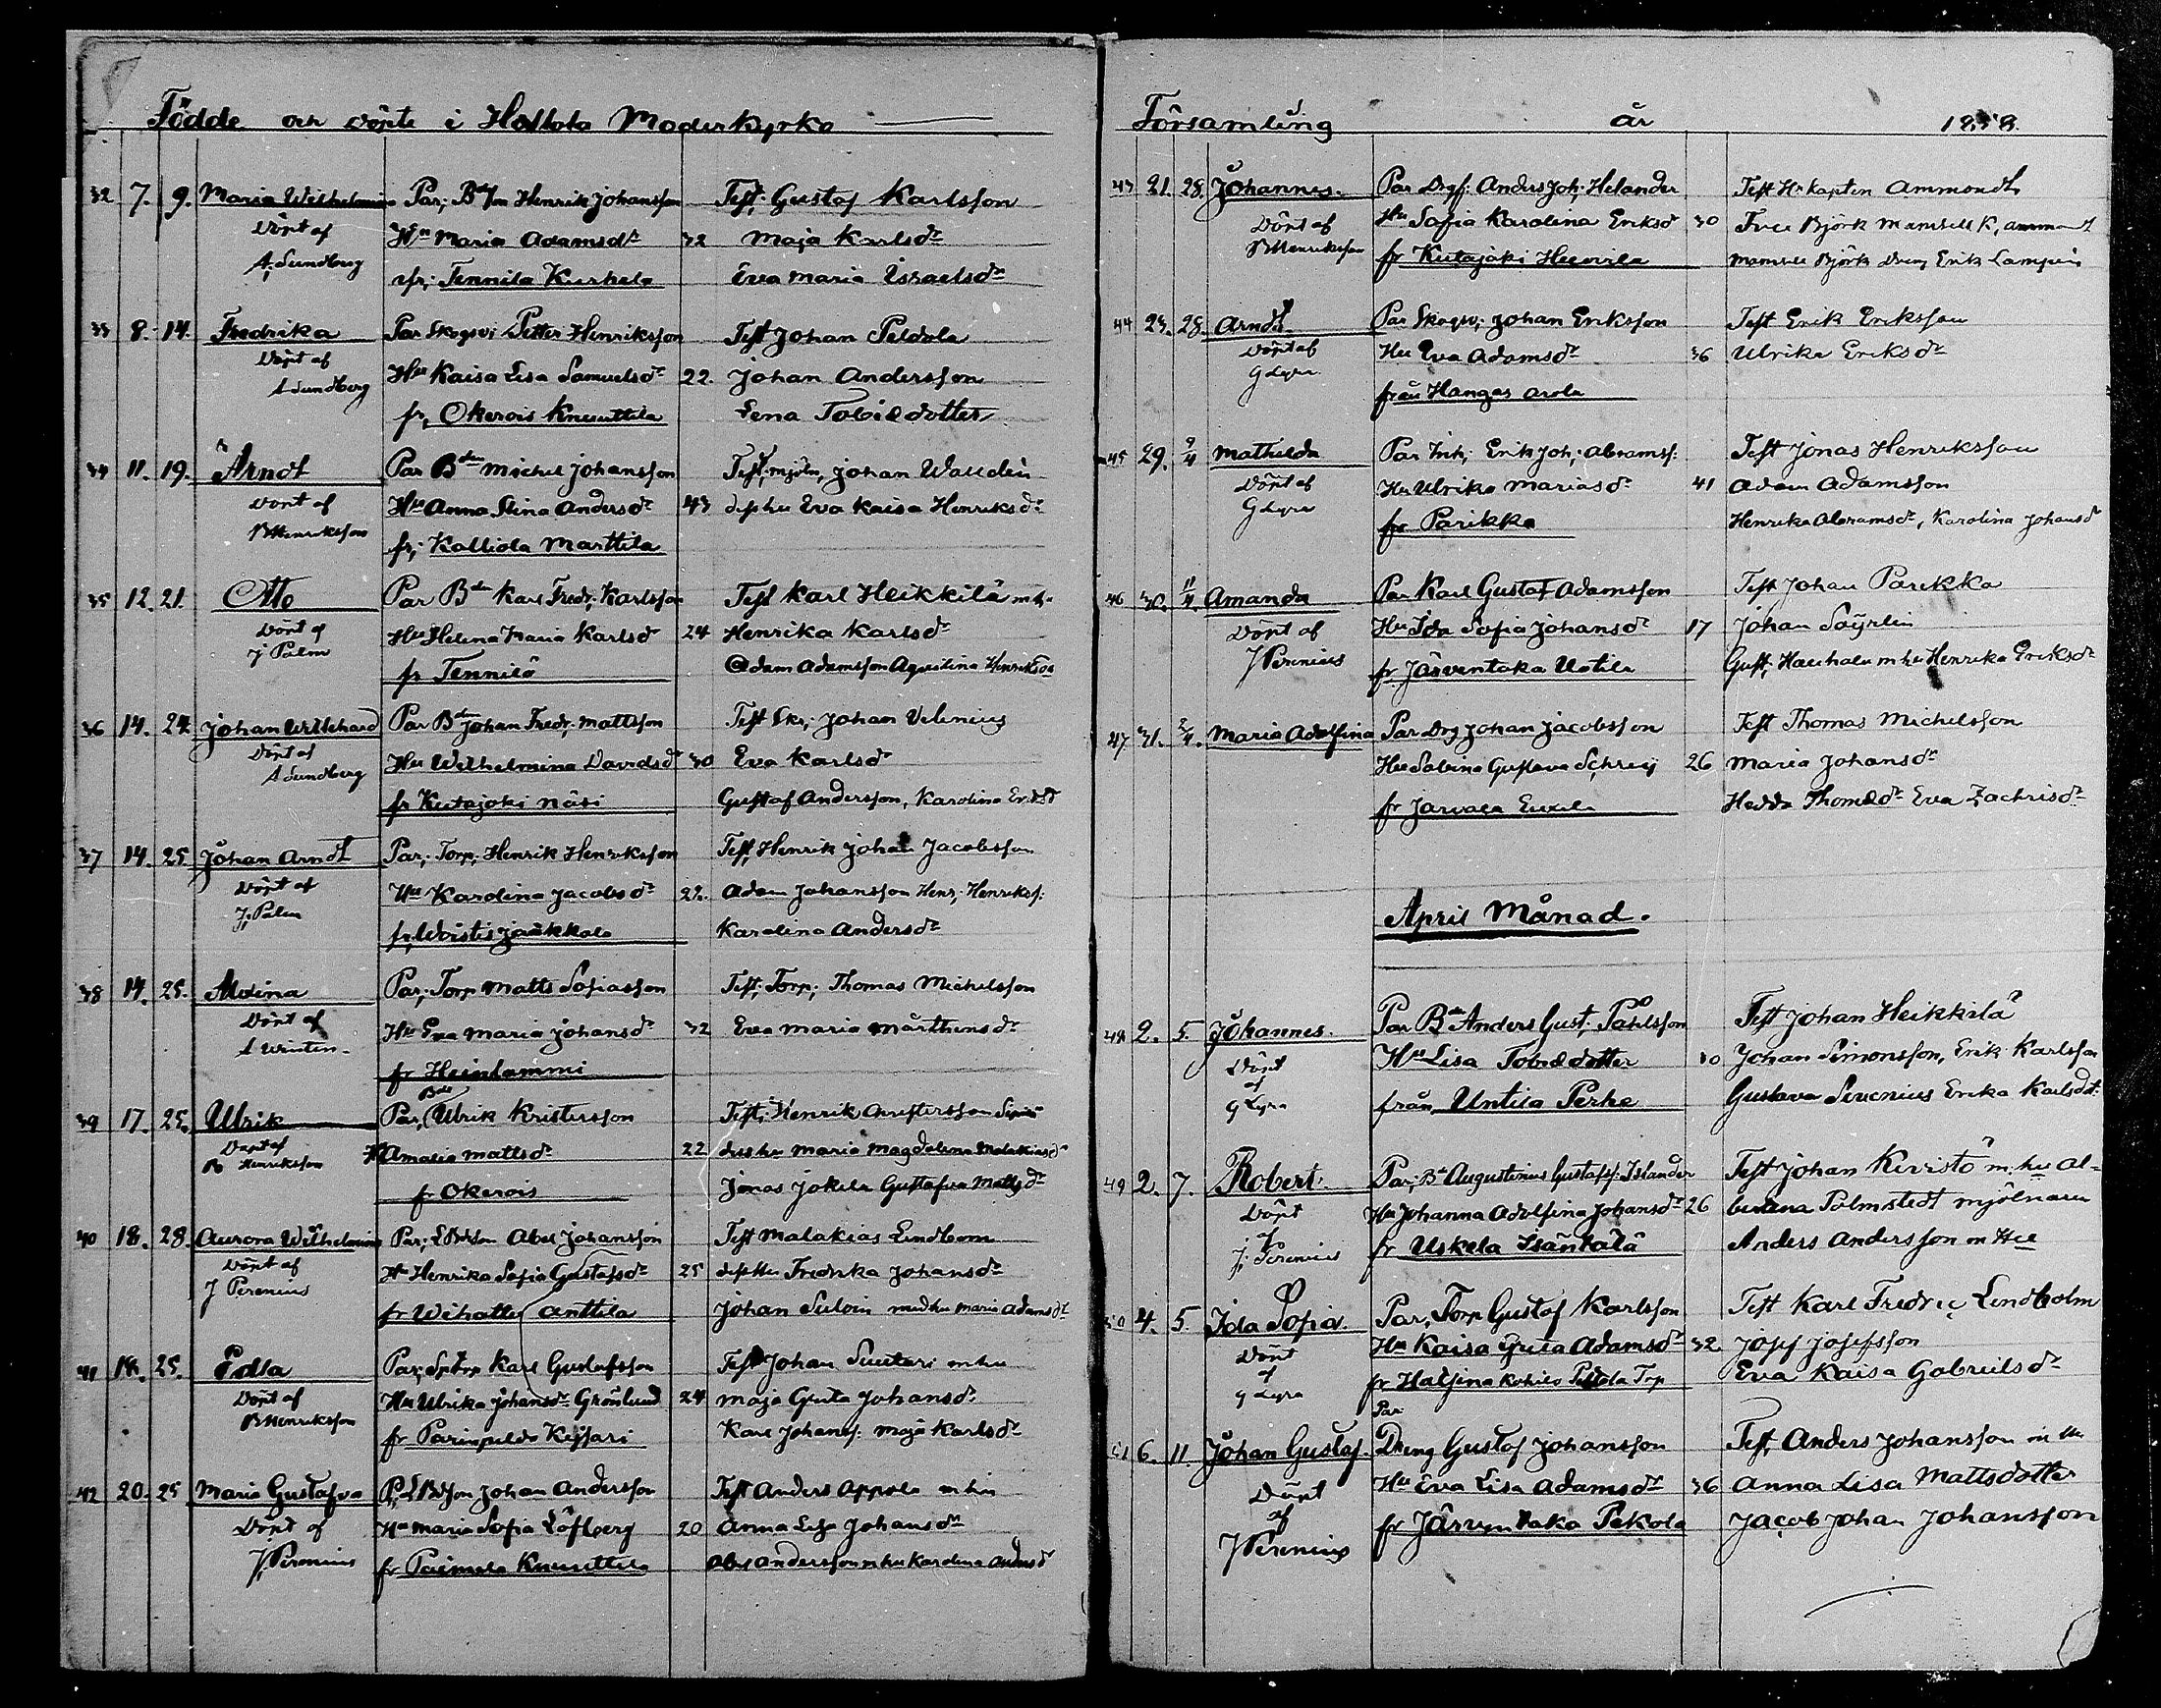 Födde och döpte i Hollola Moderkyrko
32 7. 9. Maria Wilhelmina Par; Bdson Henrik Johansson Test; Gustaf Karlsson
Döpt af Hu Maria Adamsdr 32 Maja Karlsdr
A. Sundberg fr; Tennilä Kurhela Eva Maria Israelsdr
33 8. 14. Fredrika Par Skogsv; Petter Henriksson Test Johan Peldola
Döpt af Hu Kaisa Lisa Samuelsdr 22. Johan Andersson
A Sundberg fr, Okerois Knuuttila Lena Tobiædotter
34 11. 19. Arndt Par Bden Michel Johansson Test; mjöln, Johan Walldén
Döpt af Hu Anna Stina Andersdr 43 dess hu Eva Kaisa Henriksdr
B Henriksson fr; Kalliola Marttila
35 12. 21. Otto Par Bden Karl Fredr; Karlsson Test Karl Heikkilä m h.
Döpt af Hu Helena Maria Karlsdr 24 Henrika Karlsdr
J Palm fr Tennilä Adam Adamsson Agustina Henriksdr
36 14. 24. Johan Willehard Par Bden Johan Fredr; Mattsson Test Skr; Johan Velenius
Döpt af Hu Wilhelmina Davidsdr 30 Eva Karlsdr
A Sundberg fr Kutajoki Näsi Gustaf Andersson, Karolina Eriksd
37 14. 25 Johan Arndt Par; Torp; Henrik Henriksson Test, Henrik Johan Jacobsson
Döpt af Hu Karolina Jacobsdr 22. Adam Johansson Henr; Henrikss:
J. Palm fr, Woistis Jaakkola Karolina Andersdr
38 14. 25. Alvina Par; Torp Matts Sofiasson Test; Torp; Thomas Michelsson
Döpt af Hu Eva Maria Johansdr 32 Eva Maria Mårthensdr
A Winten fr Heinlammi
39 17. 25. Ulrik Par, Bde Ulrik Kristersson Test; Henrik Christersson
Döpt af Hu Amalia Mattsdr 22 dess hu Maria Magdalena Malakiasdr
B Henriksson fr Okerois Jonas Jokela Gustafva Mattsdr
40 18. 28. Aurora Wilhelmina Par; LBdson Abel Johansson Test Malakias Lindbom
Döpt af Hu Henrika Sofia Gustafsdr 25 dess Hu Fredrika Johansdr
J Perenius fr Wihattu Anttila Johan Suloin med hu Maria Adamsdr
41 18. 25. Edla Par; SpTrp Karl Gustafsson Test Johan Suutari m hu
Döpt af Hu Ulrika Johansdr Grönlund 24 Maja Greta Johansdr
B Henriksson fr Parinpelds Kissari Karl Johanss: Maja Karlsdr
42 20. 25 Maria Gustafva P; LBdson Johan Andersson Test Anders Appola m hu
Döpt af Hu Maria Sofia Löfberg 20 Anna Lisa Johansdr
J, Perenius fr Paimela Knuuttila Abel Andersson m hu Karolina Andersdr
Församling år 1858.
43 21. 28. Johannes. Par Drgf: Anders Joh; Helander Test Hr Kapten Ammondt,
Döpt af Hu Sofia Karolina Eriksd 30 Fru Björk Mamsell K, Ammondt
B Henriksson fr Kutajoki Huovila Mamsell Björk Dreng Erik Lampén
44 23. 28. Arndt. Par Skogsv; Johan Eriksson Test Erik Eriksson
Döpt af Hu Eva Adamsdr 36 Ulrika Eriksdr
G Lyra från Hangas Arola
45 29. 9/4 Mathilda Par Inh; Erik Joh; Abramss: Test Jonas Henriksson
Döpt af Hu Ulrika Mariasdr 41 Adam Adamsson
G Lyra fr Parikka Henrika Abramsdr, Karolina Johansd
46 30. 11/4. Amanda Par Karl Gustaf Adamsson Test Johan Parikka
Döpt af Hu Ida Sofia Johansdr 17 Johan Säyrlin
J Perenius fr Järventaka Uotila Gust; Hauhala m hu Henrika Eriksdr
47 31. 2/4. Maria Adolfina Par Drg Johan Jacobsson Test Thomas Michelsson
Hu Sabina Gustava Schreij 26 Maria Johansdr
fr Jarvala Hedda Thomædr Eva Zachrisdr
April Månad.
48 2. 5. Johannes. Par Bde Anders Gust; Påhlsson Test Johan Heikkilä
Döpt Hu Lisa Tobiædotter 30 Johan Simonsson, Erik Karlsson
af
G Lyra från Untila Perhe Gustava Sirenius Erika Karlsdtr
49 2. 7. Robert. Par; Bde Augustinus Gustafss: Islander Test Johan Kivistö m. hu Al-
Döpt Hu Johanna Adolfina Johansdr 26 bertina Palmstedt mjölnaren
af
J; Perenius fr Uskela Isäntälä Anders Andersson m Hu
50 4. 5. Ida Sofia. Par, Torp Gustaf Karlsson Test Karl Fredric Lindholm
Döpt Hu Kaisa Greta Adamsdr 32 Josef Josefsson
af
G Lyra fr Hatsina Peltola Trp Eva Kaisa Gabrielsdr
51 6. 11. Johan Gustaf. Par Dreng Gustaf Johansson Test, Anders Johansson m hu
Döpt Hu Eva Lisa Adamsdr 36 Anna Lisa Mattsdotter
af fr Järventaka Pekola Jacob Johan Johansson
J Perenius